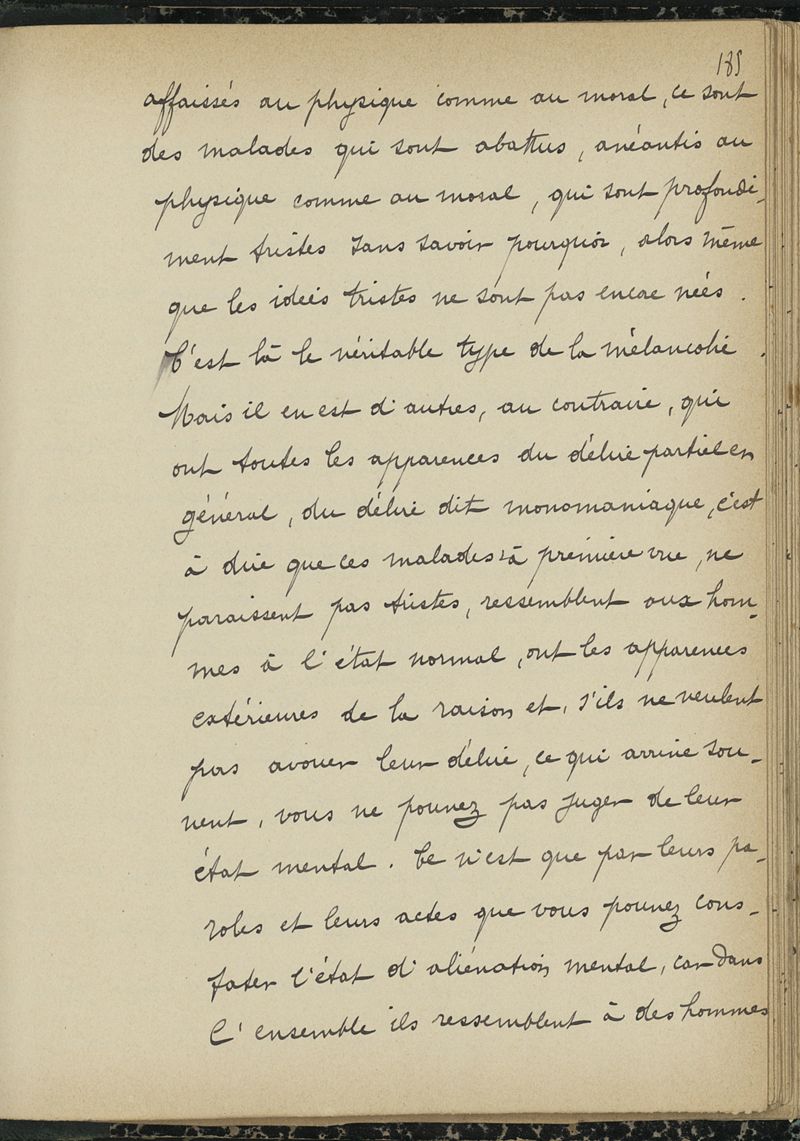 185
affaissés au physique comme au moral, ce sont
des malades qui sont abattus, anéantis au
physique comme au moral, qui sont profondé-
ment tristes sans savoir pourquoi, alors même
que les idées tristes ne sont pas encore nées.
C'est là le véritable type de la mélancolie.
Mais il en est d'autres, au contraire, qui
ont toutes les apparences du délire partiel en
général, du délire dit monomaniaque, c'est
à dire que ces malades à première vue, ne
paraissent pas tristes, ressemblent aux hom-
mes à l'état normal, ont les apparences
extérieures de la raison et, s'ils ne veulent
pas avouer leur délire, ce qui arrive sou-
vent, vous ne pouvez pas juger de leur
état mental. Ce n'est que par leurs pa-
roles et leurs actes que vous pouvez cons-
tater l'état d'aliénation mental, car dans
l'ensemble ils ressemblent à des hommes